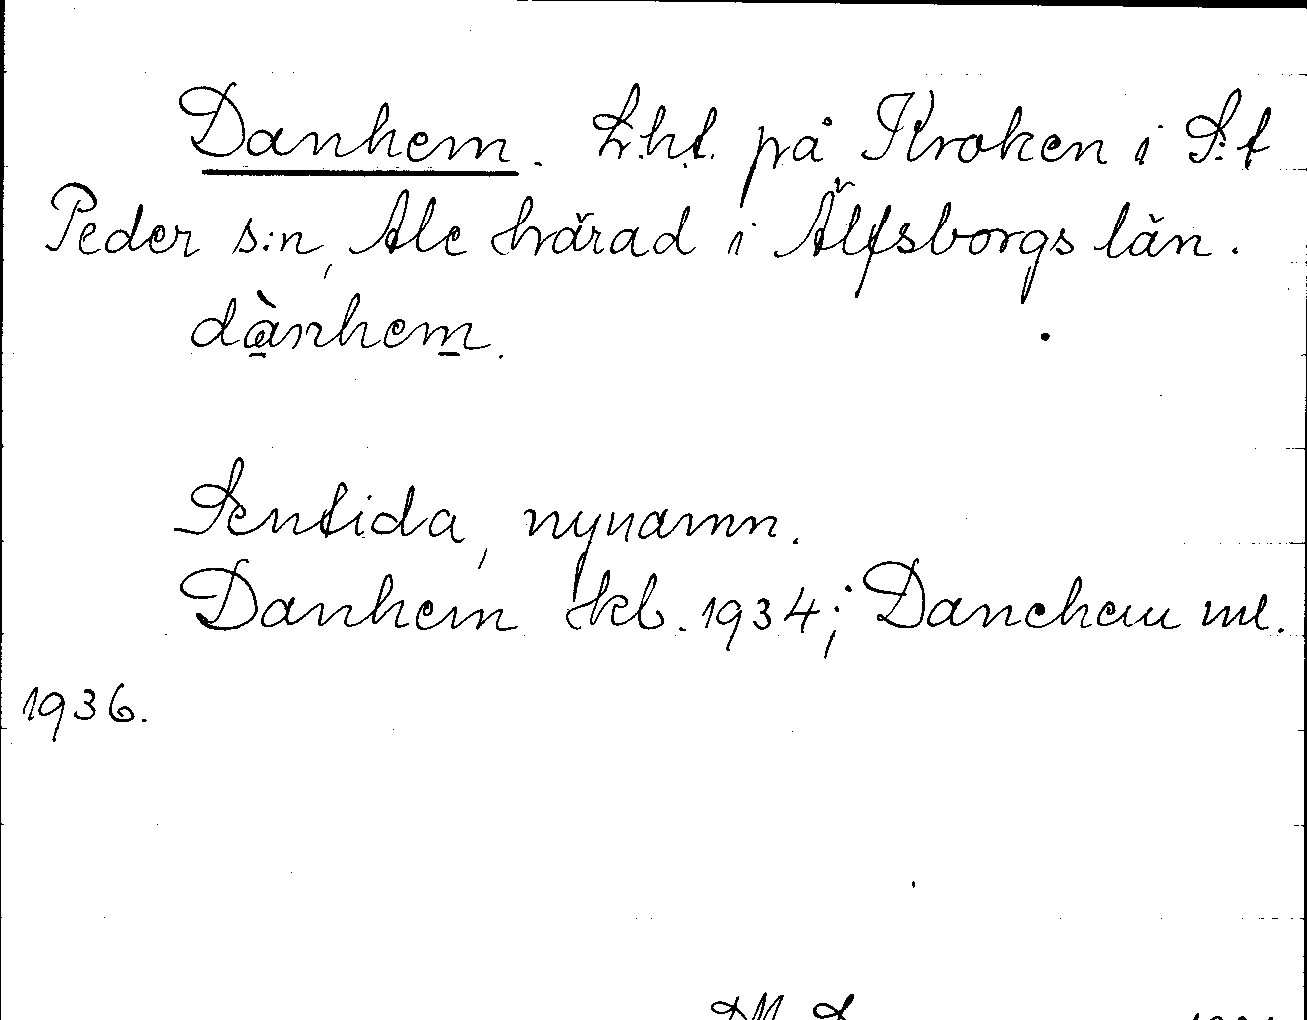 Danhem. Lht. på Kroken i S:t
Peder s:n, Ale härad i Älfsborgs län.
dànhem.
Sentida, nynamn.
Danhem kb. 1934; Danehem ml.
1936.